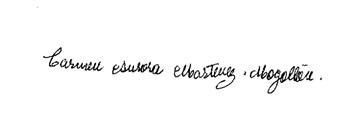 Carmen Aurora Martinez Mogollón.